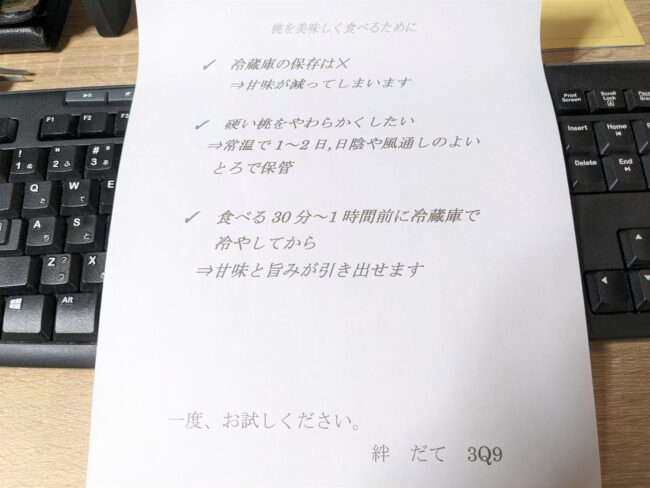 桃を美味しく食べるために
✓ 冷蔵庫の保存は×
⇒甘味が減ってしまいます
✓ 硬い桃をやわらかくしたい
⇒常温で1～2日,日陰や風通しのよい
とろで保管
✓ 食べる30分～1時間前に冷蔵庫で
冷やしてから
⇒甘味と旨みが引き出せます
一度、お試しください。
絆 だて 3Q9
F1
F2
F3
Print Screen
Scroll Lock
Insert
Home
Delete
End
Q
W
A
S
Z
X
Alt